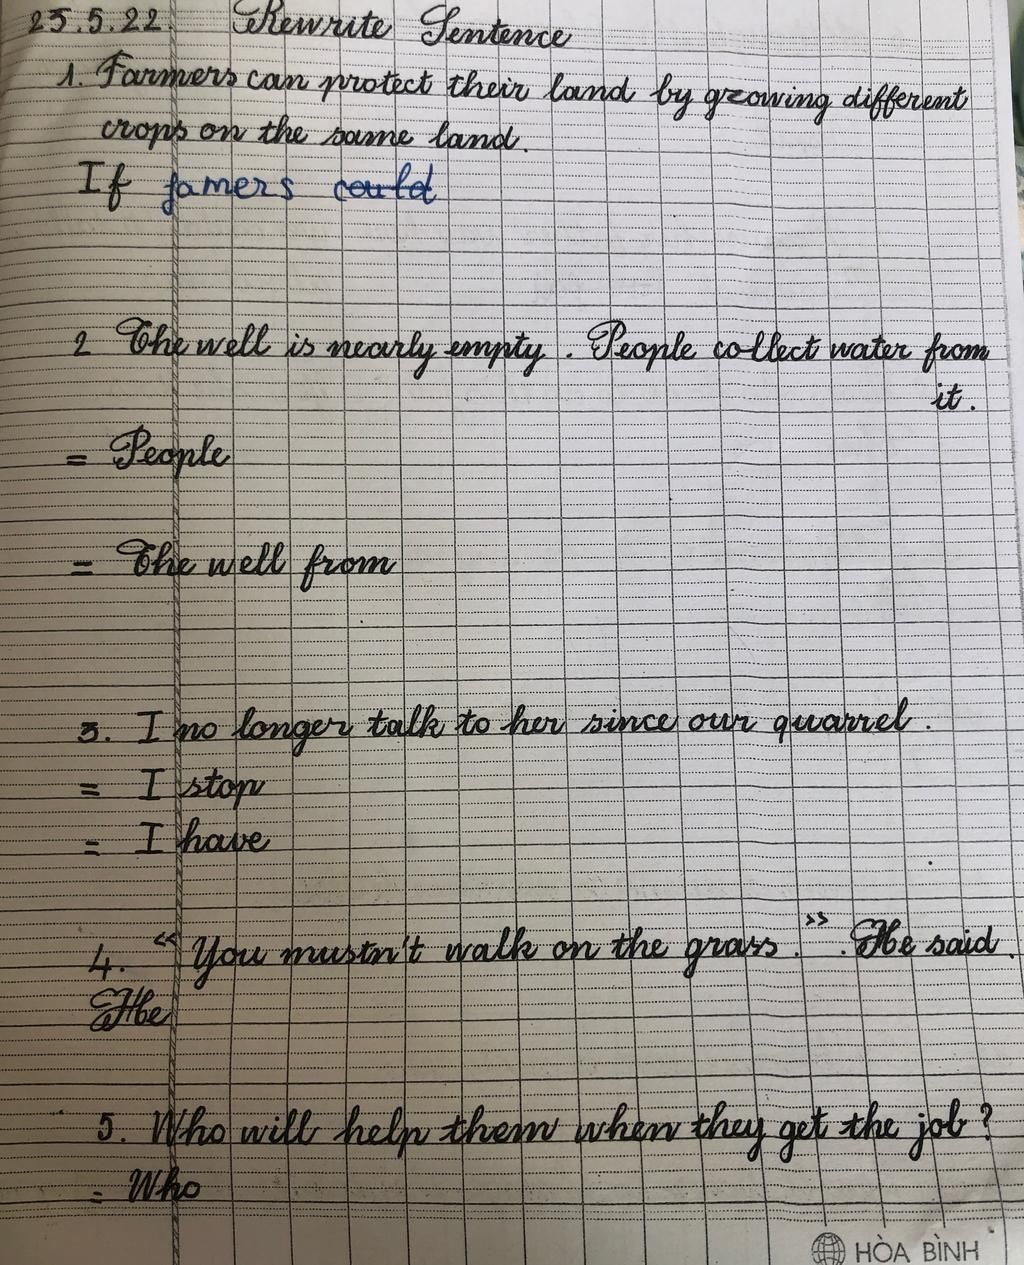 25.5.22. Rewrite Sentence
1. Farmers can protect their land by growing different
crops on the same land.
If famers could
2 The well is nearly empty. People collect water from
it.
= People
= The well from
3. I no longer talk to her since our quarrel.
= I stop
= I have
4. “You mustn't walk on the grass.”. He said.
He
5. Who will help them when they get the job?
= Who
HÒA BÌNH